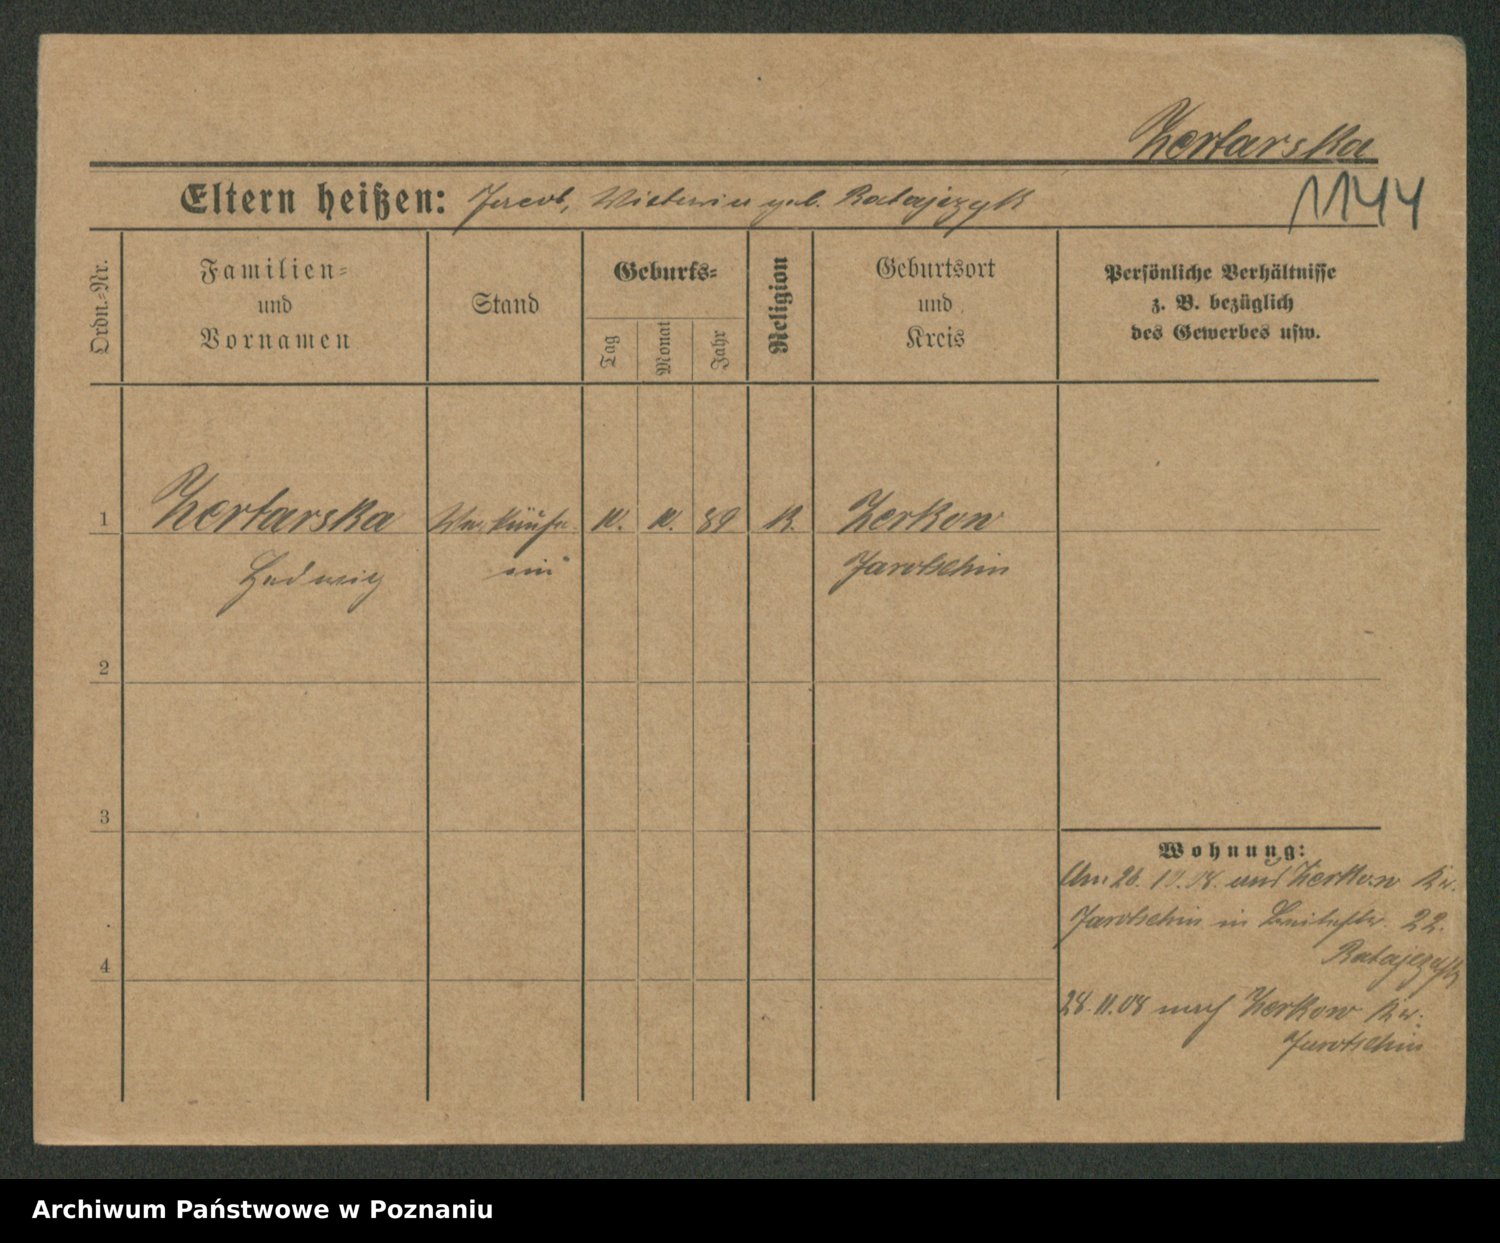 Zertarska
Eltern heißen: Jacob, Victoria geb. Ratajczyk
1144
Ordn.-Nr.
Familien- und Vornamen
Stand
Geburts-
Tag
Monat
Jahr
Religion
Geburtsort und Kreis
Persönliche Verhältnisse
z. B. bezüglich
des Gewerbes usw.
1 Zertarska Verkäufe- 10. 10. 89 K. Zerkow
Hedwig rin Jarotschin
2
3
4
Wohnung:
Am 26. 10. 08. aus Zerkow Kr.
Jarotschin in 22.
Ratajczyk
28.11.08 nach Zerkow Kr.
Jarotschin
Archiwum Państwowe w Poznaniu